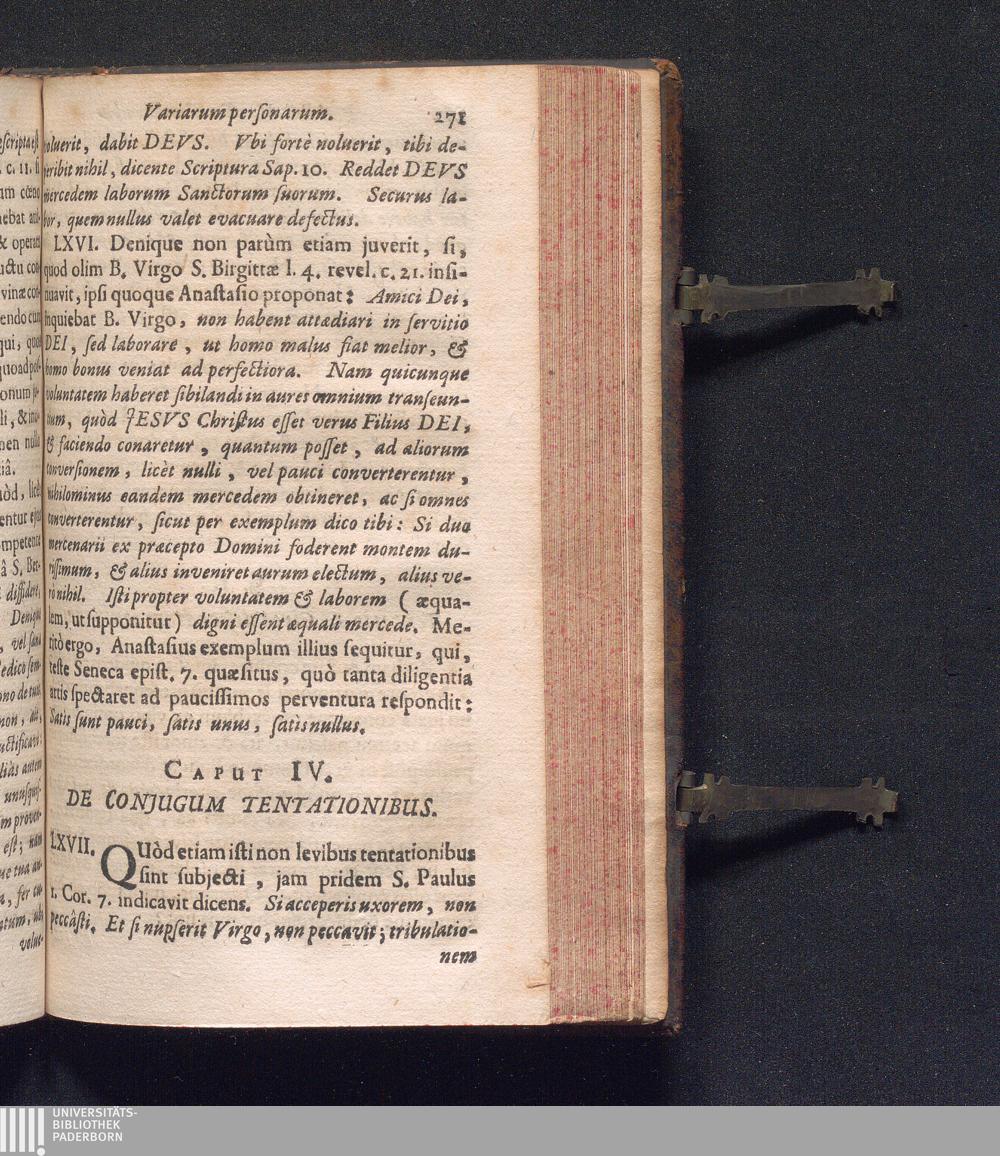 Variarum personarum. 271
voluerit, dabit DEVS. Vbi fortè noluerit, tibi de-
peribit nihil, dicente Scriptura Sap. 10. Reddet DEVS
mercedem laborum Sanctorum suorum. Securus la-
bor, quem nullus valet evacuare defectus.
LXVI. Denique non parùm etiam juverit, si,
quod olim B. Virgo S. Birgittæ l. 4. revel. c. 21. insi-
nuavit, ipsi quoque Anastasio proponat: Amici Dei,
inquiebat B. Virgo, non habent attædiari in servitio
DEI, sed laborare, ut homo malus fiat melior, &
homo bonus veniat ad perfectiora. Nam quicunque
voluntatem haberet sibilandi in aures omnium transeun-
tium, quòd JESVS Christus esset verus Filius DEI,
& faciendo conaretur, quantum posset, ad aliorum
conversionem, licèt nulli, vel pauci converterentur,
nihilominus eandem mercedem obtineret, ac si omnes
converterentur, sicut per exemplum dico tibi: Si duo
mercenarii ex præcepto Domini foderent montem du-
rissimum, & alius inveniret aurum electum, alius ve-
rò nihil. Isti propter voluntatem & laborem (æqua-
lem, ut supponitur) digni essent æquali mercede. Me-
ritò ergo, Anastasius exemplum illius sequitur, qui,
teste Seneca epist. 7. quæsitus, quò tanta diligentia
artis spectaret ad paucissimos perventura respondit:
Satis sunt pauci, satis unus, satis nullus.
CAPUT IV.
DE CONJUGUM TENTATIONIBUS.
LXVII. QUòd etiam isti non levibus tentationibus
sint subjecti, jam pridem S. Paulus
1. Cor. 7. indicavit dicens. Si acceperis uxorem, non
peccâsti. Et si nupserit Virgo, non peccavit; tribulatio-
nem
UNIVERSITÄTS-
BIBLIOTHEK
PADERBORN